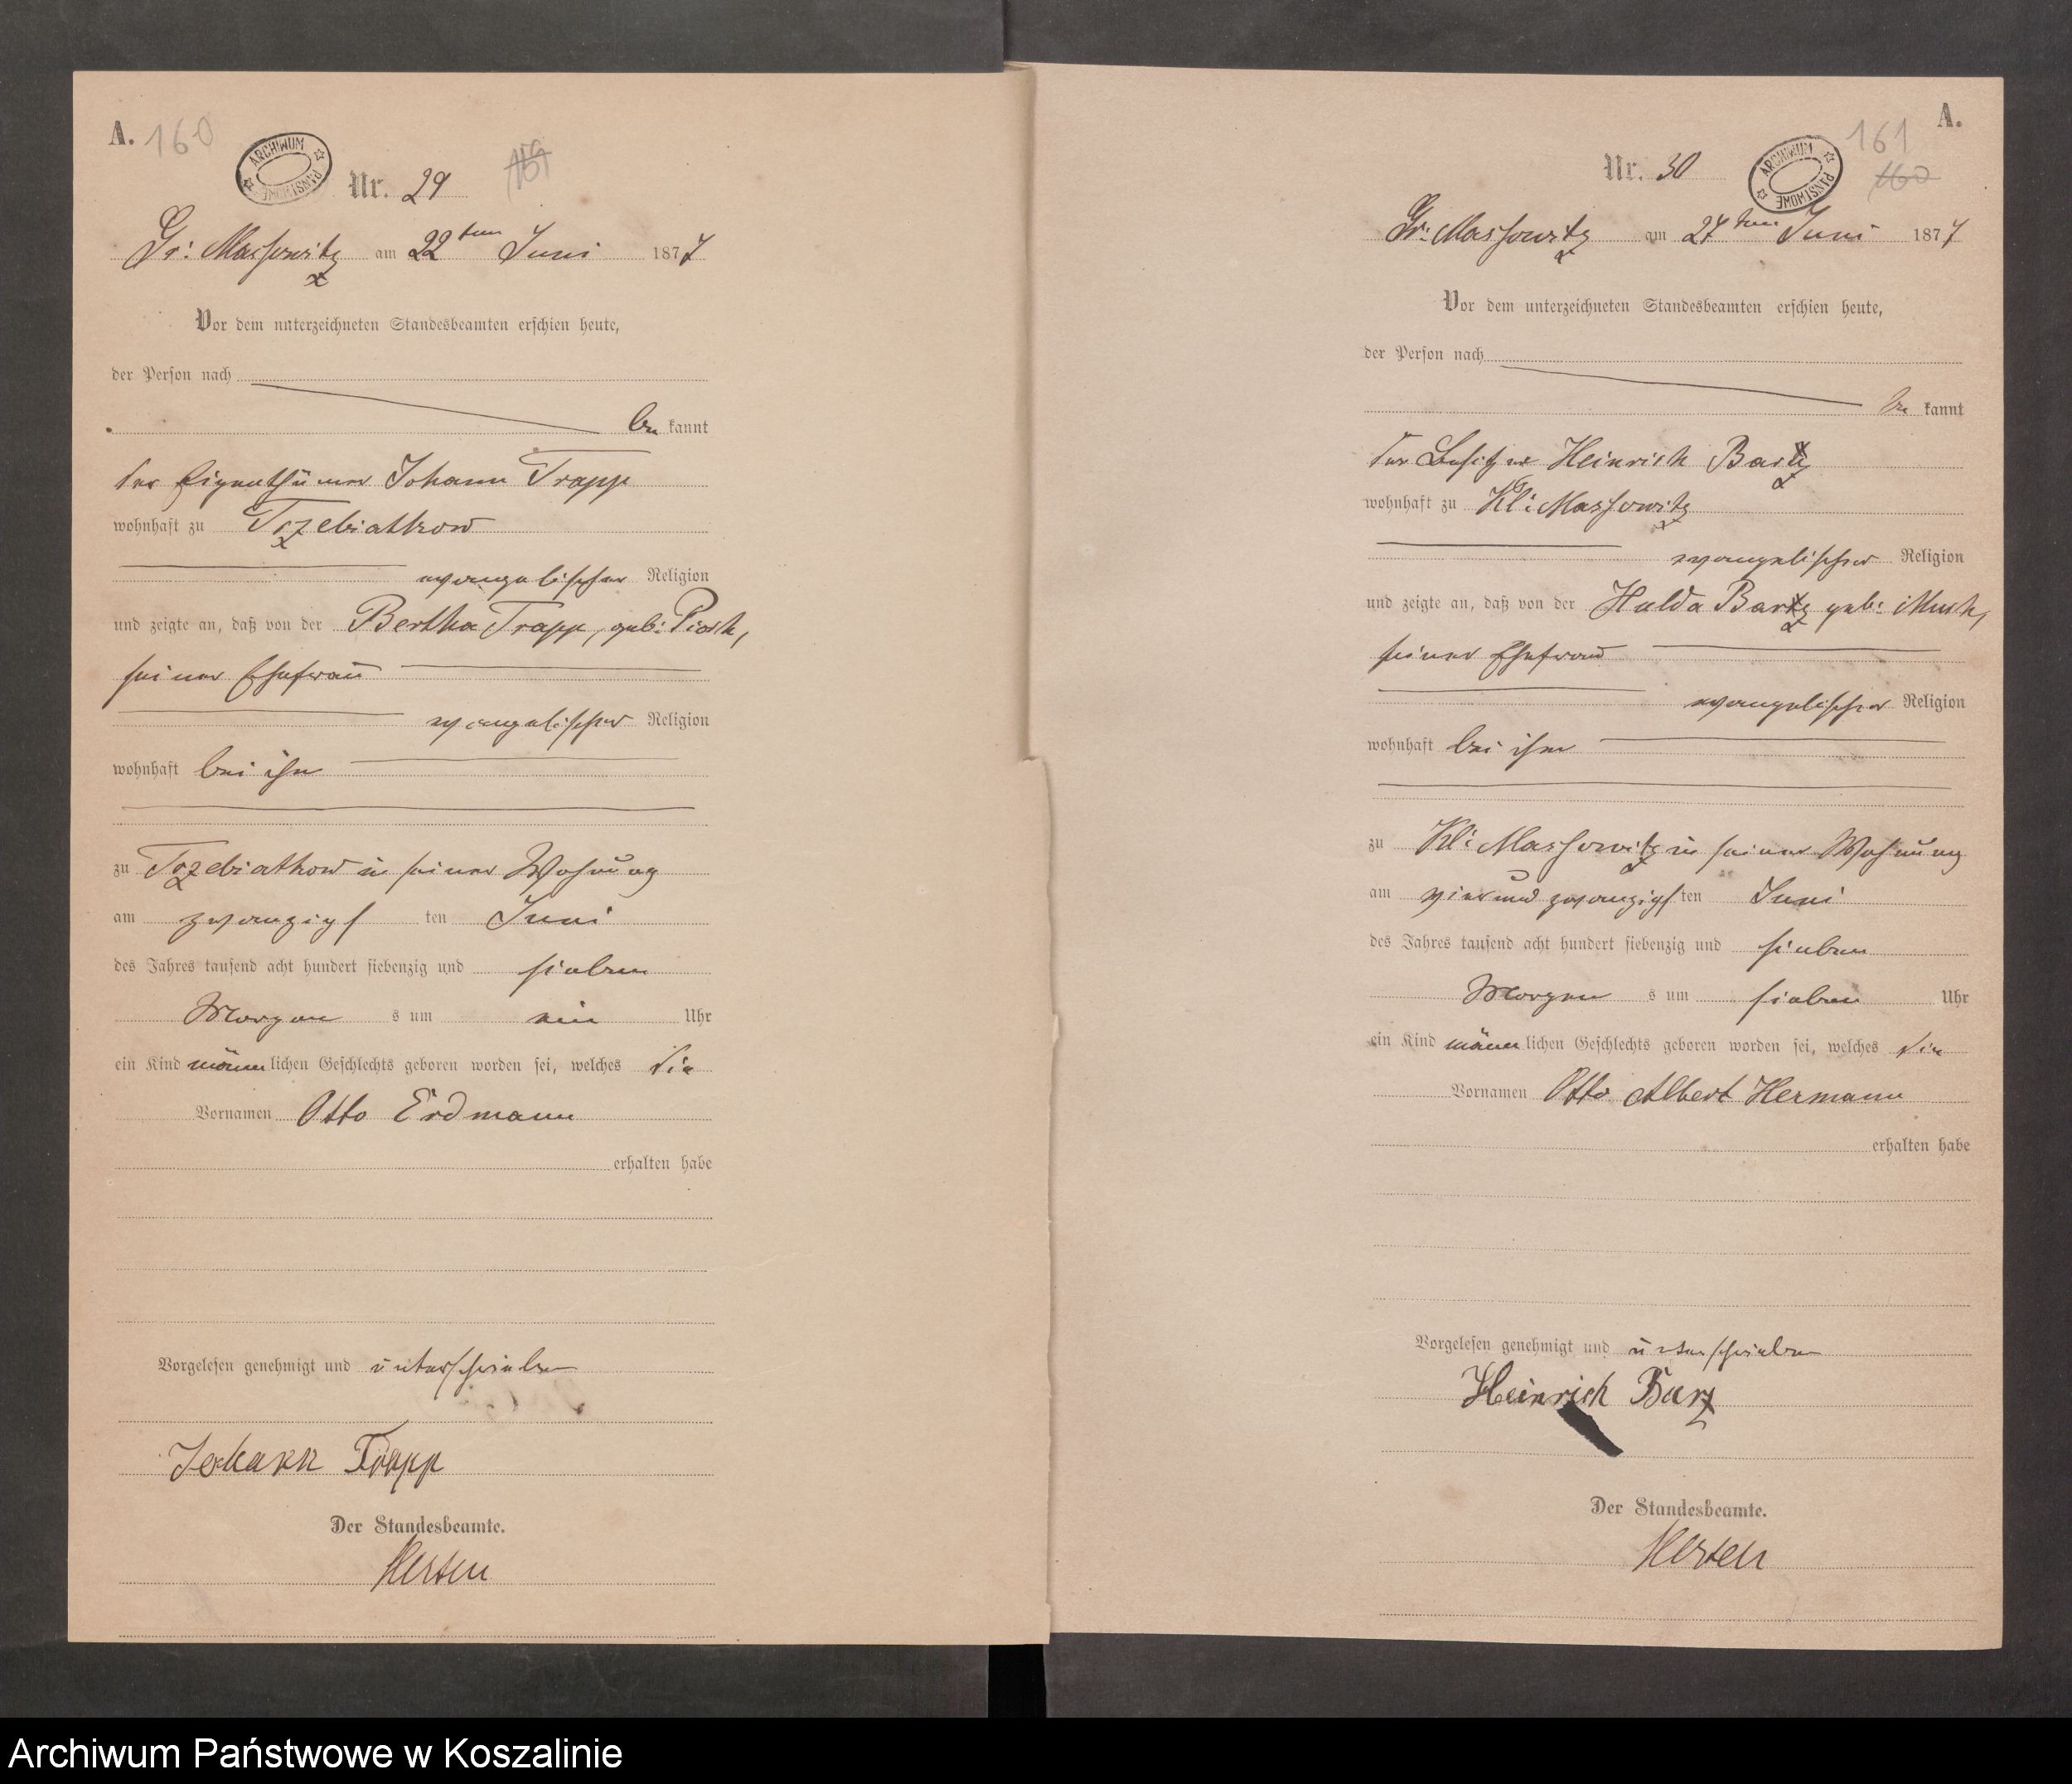 A. 160
ARCHIWUM PAŃSTWOWE
Nr. 29
159
Gr: Massowitz am 22ten Juni 1877
Vor dem unterzeichneten Standesbeamten erschien heute,
der Person nach
be kannt
der Eigenthümer Johann Trapp
wohnhaft zu Trzebiatkow
evangelischer Religion
und zeigte an, daß von der Bertha Trapp, geb:
seiner Ehefrau
evangelischer Religion
wohnhaft bei ihm
zu Trzebiatkow in seiner Wohnung
am zwanzigs ten Juni
des Jahres tausend acht hundert siebenzig und sieben
Morgen s um ein Uhr
ein Kind männ lichen Geschlechts geboren worden sei, welches die
Vornamen Otto Erdmann
erhalten habe
Vorgelesen genehmigt und unterschrieben
Johann Trapp
Der Standesbeamte.
Hersen
A.
161
160
ARCHIWUM PAŃSTWOWE
Nr. 30
Gr: Massowitz am 27ten Juni 1877
Vor dem unterzeichneten Standesbeamten erschien heute,
der Person nach
be kannt
der Besitzer Heinrich Bartz
wohnhaft zu Kl: Massowitz
evangelischer Religion
und zeigte an, daß von der Hulda Bartz geb:
seiner Ehefrau
evangelischer Religion
wohnhaft bei ihm
zu Kl: Massowitz in seiner Wohnung
am vierundzwanzigs ten Juni
des Jahres tausend acht hundert siebenzig und sieben
Morgen s um sieben Uhr
ein Kind männ lichen Geschlechts geboren worden sei, welches die
Vornamen Otto Albert Hermann
erhalten habe
Vorgelesen genehmigt und unterschrieben
Heinrich Barz
Der Standesbeamte.
Hersen
Archiwum Państwowe w Koszalinie